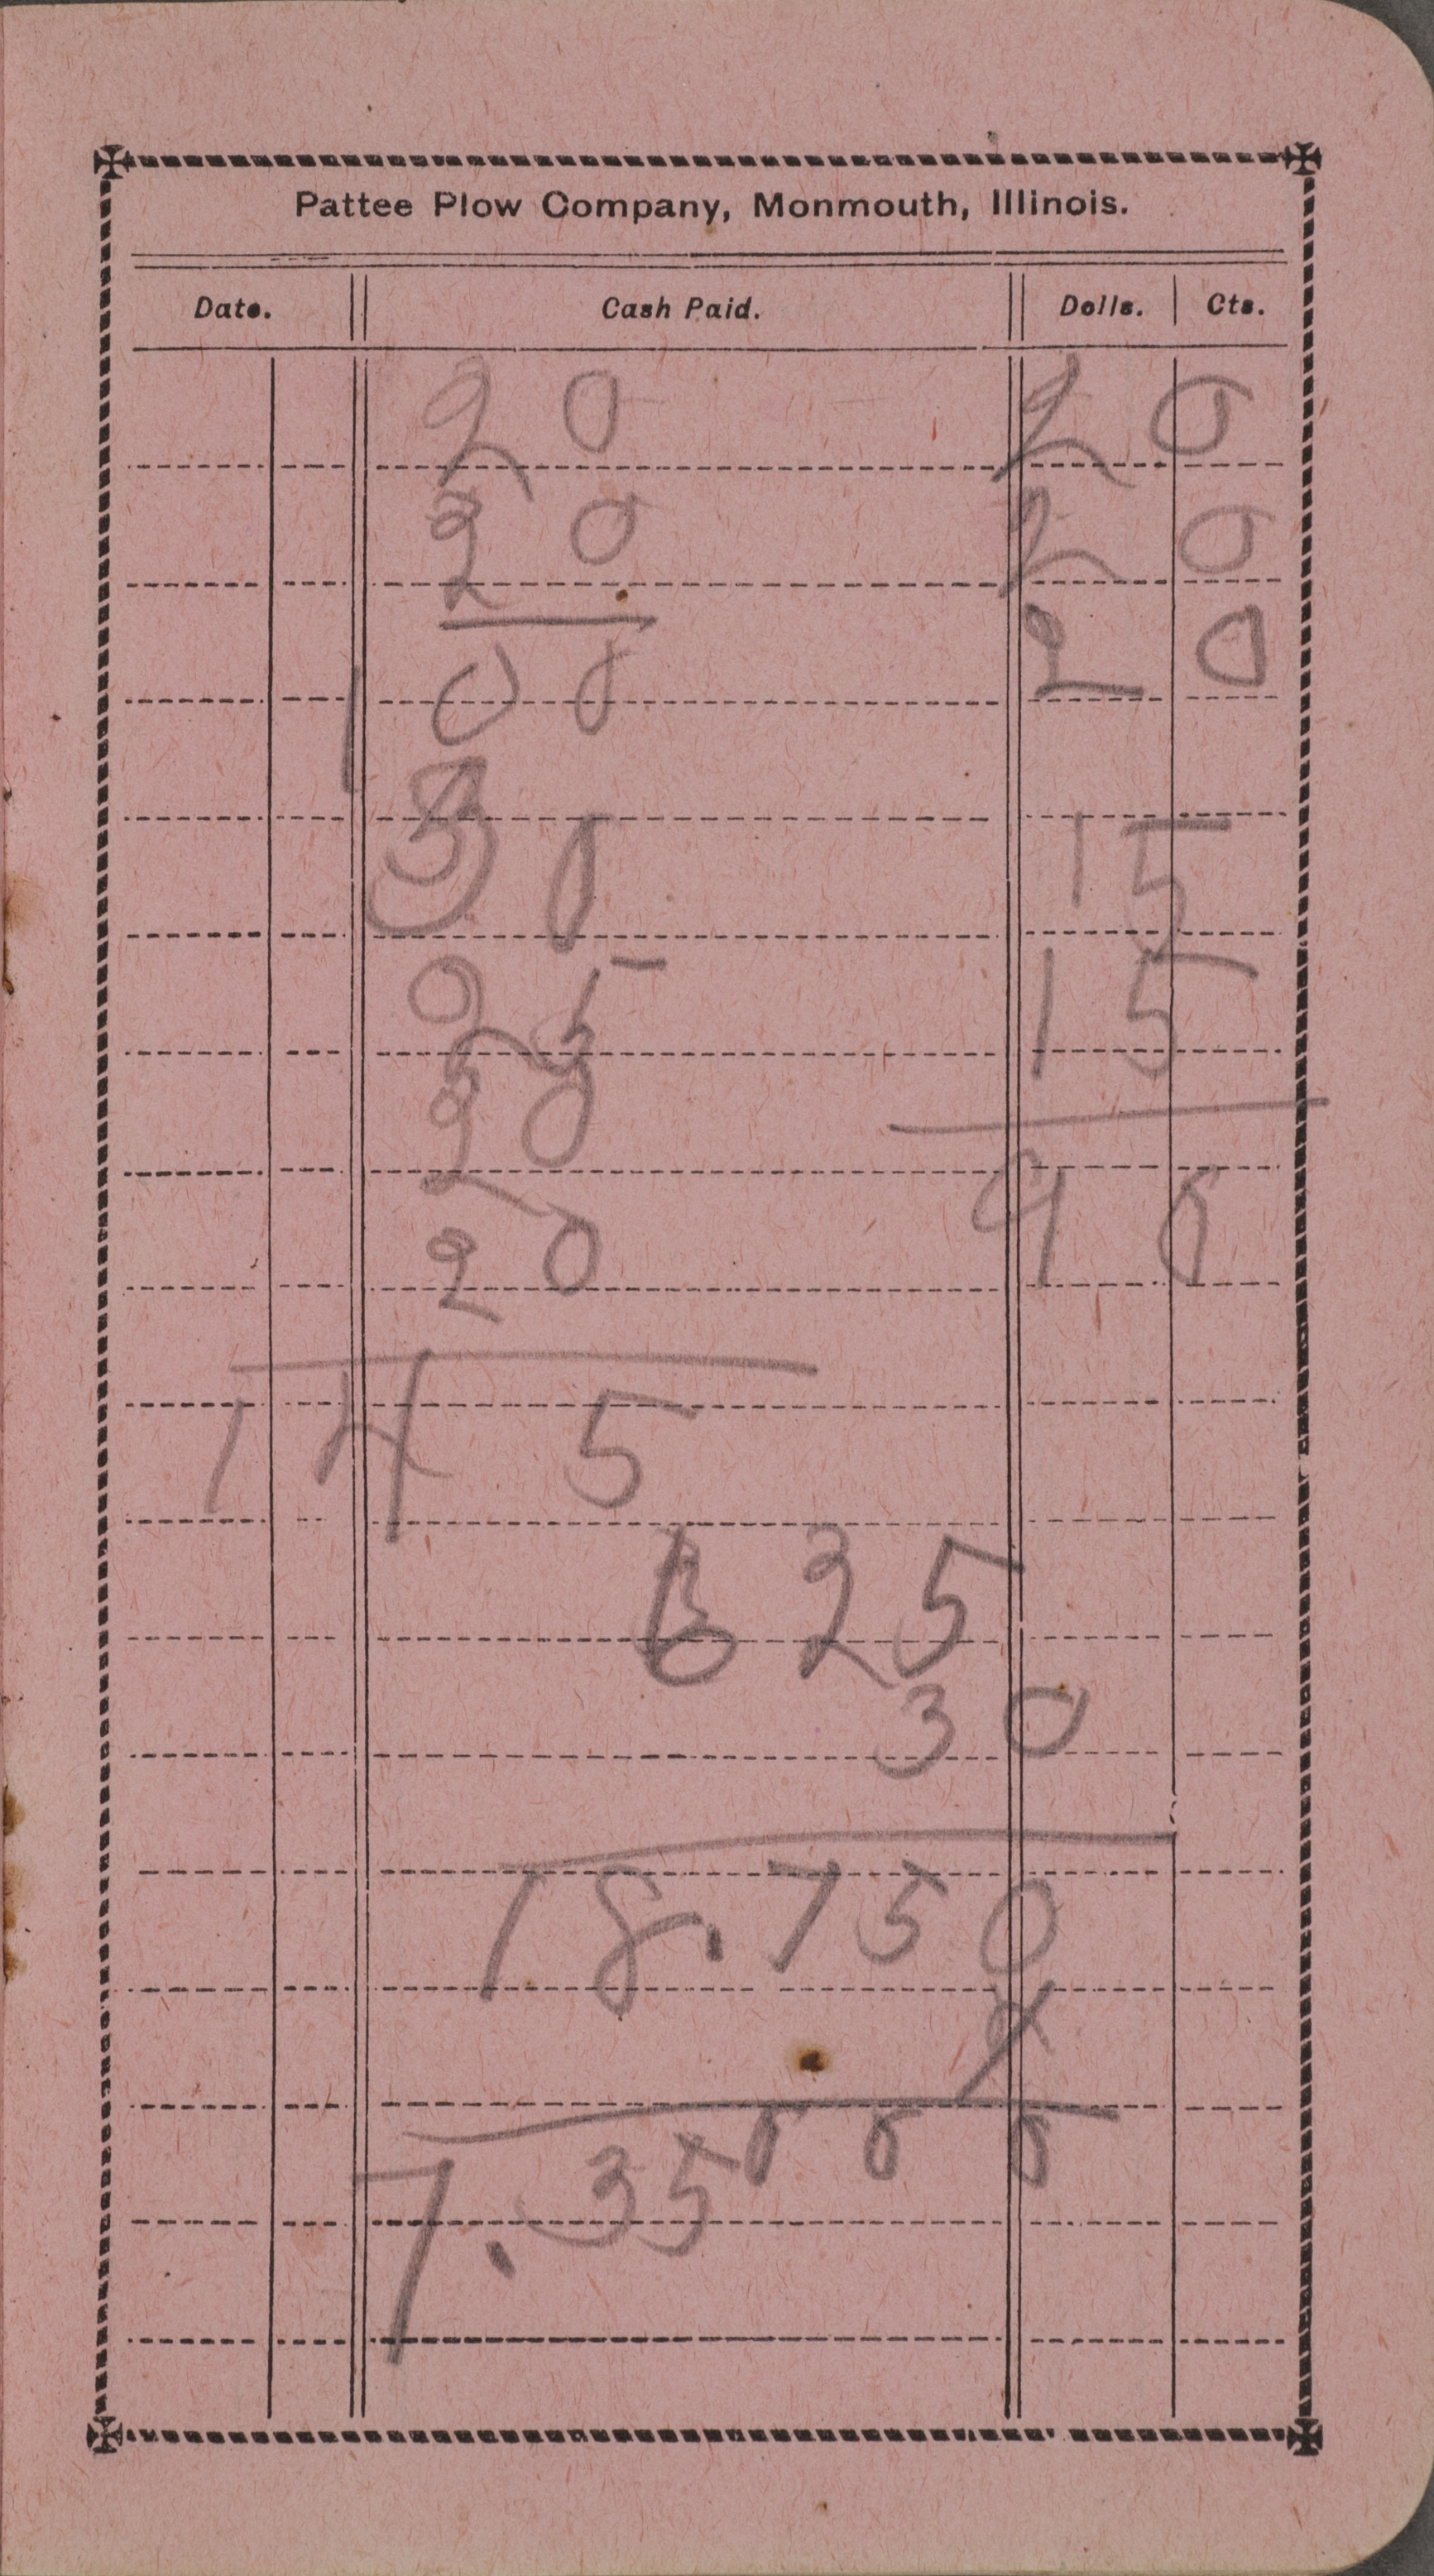 Pattee Plow Company, Monmouth, Illinois.
Date. Cash Paid. Dolls. Cts.
20 20
20 20
20
100
30 15
15
20
90
20
145
625
30
18.750
000
7.35